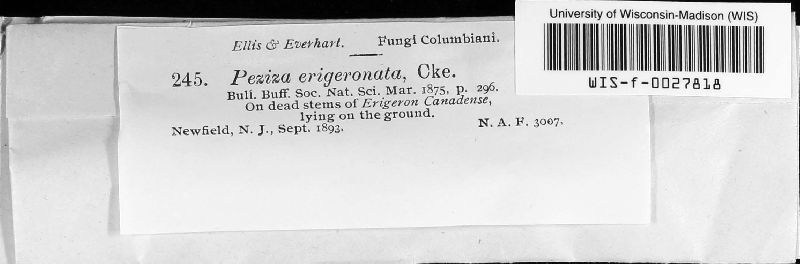 Ellis & Everhart. Fungi Columbiani.
245. Peziza erigeronata, Cke.
Bull. Buff. Soc. Nat. Sci. Mar. 1875, p. 296.
On dead stems of Erigeron Canadense,
lying on the ground.
Newfield, N. J., Sept. 1893. N. A. F. 3007.
University of Wisconsin-Madison (WIS)
WIS-f-0027818